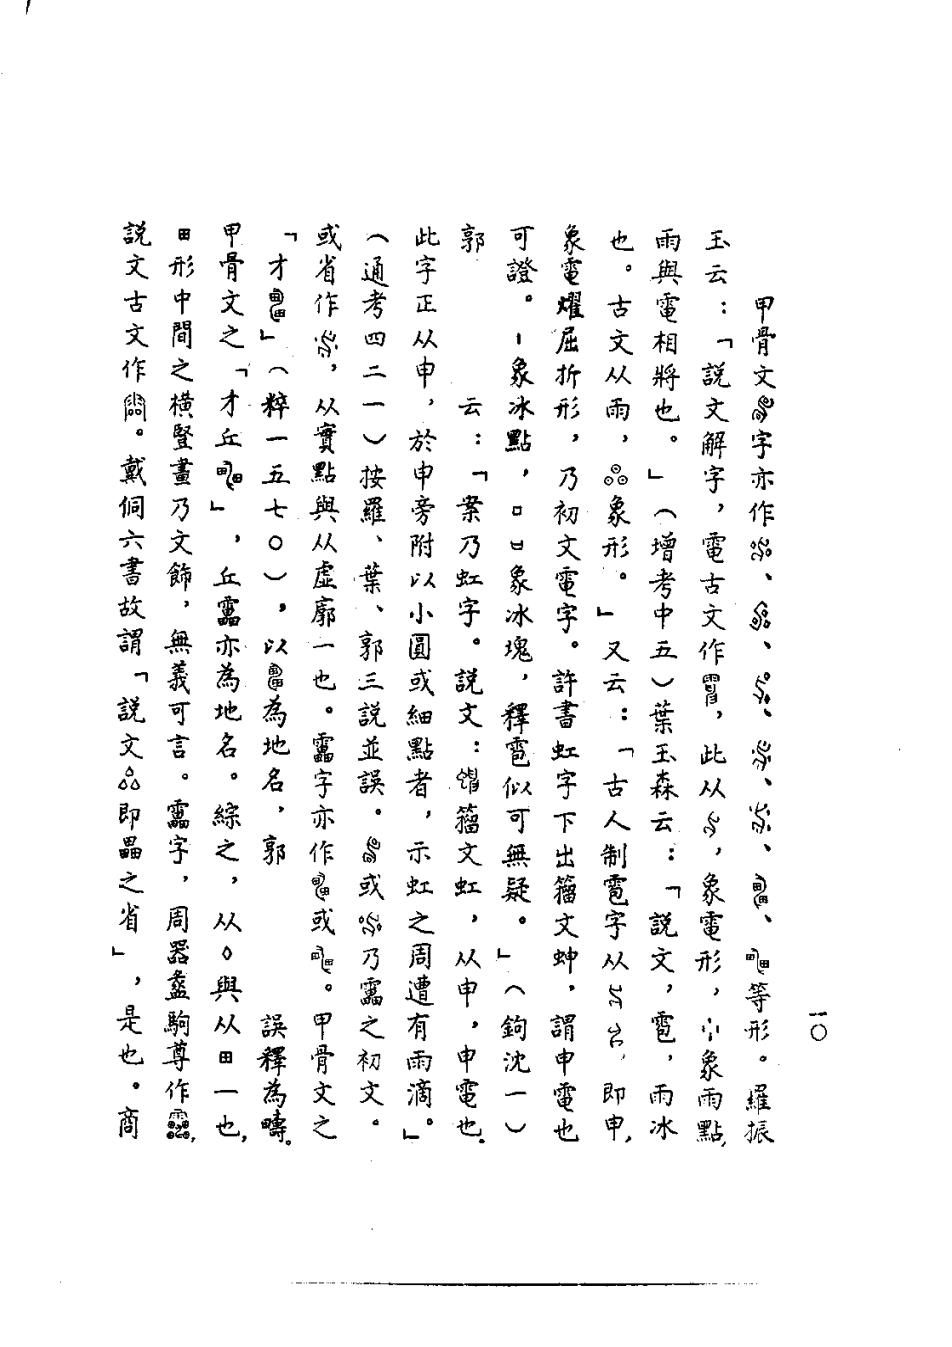 一〇
甲骨文字亦作、、、、、、等形。羅振
玉云：「說文解字，電古文作，此从，象電形，象雨點，
雨與電相將也。」（增考中五）葉玉森云：「說文，雹，雨冰
也。古文从雨，象形。」又云：「古人制雹字从，即申，
象電燿屈折形，乃初文電字。許書虹字下出籀文蚺，謂申電也
可證。象冰點，口口象冰塊，釋雹似可無疑。」（鉤沈一）
郭　　云：「案乃虹字。說文：籀文虹，从申，申電也。
此字正从申，於申旁附以小圓或細點者，示虹之周遭有雨滴。」
（通考四二一）按羅、葉、郭三說並誤。或乃靁之初文。
或省作，从實點與从虛廓一也。靁字亦作或。甲骨文之
「才」（粹一五七〇），以為地名，郭　　誤釋為疇。
甲骨文之「才丘」，丘靁亦為地名。綜之，从與从田一也，
田形中間之橫豎畫乃文飾，無義可言。靁字，周器盠駒尊作，
說文古文作。戴侗六書故謂「說文即畾之省」，是也。商